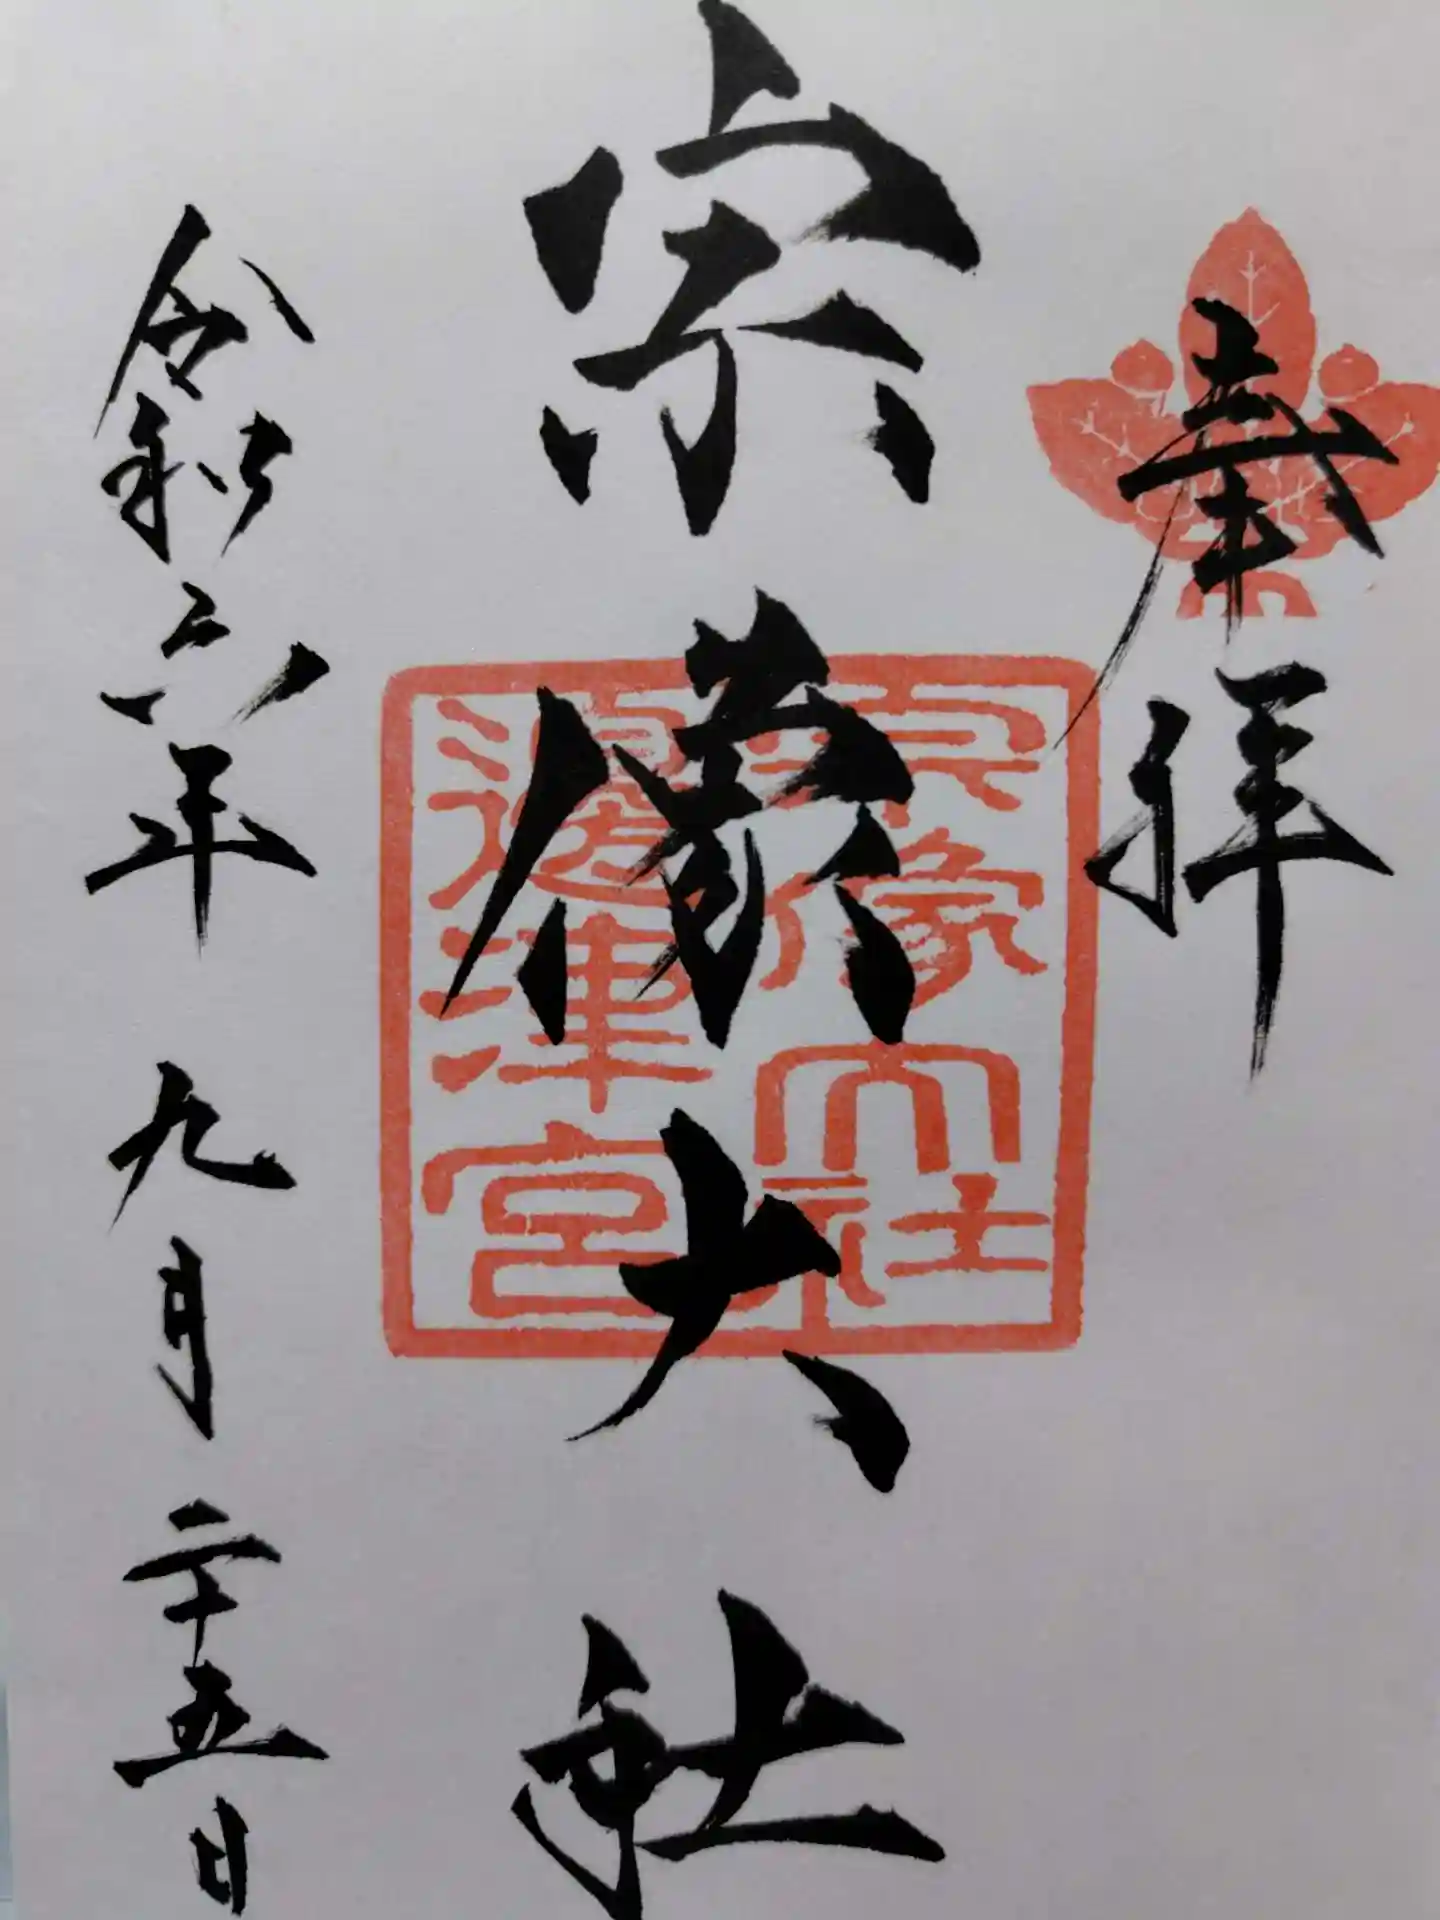 奉拝
宗像大社
宗像大社
邊津宮
令和六年 九月二十五日